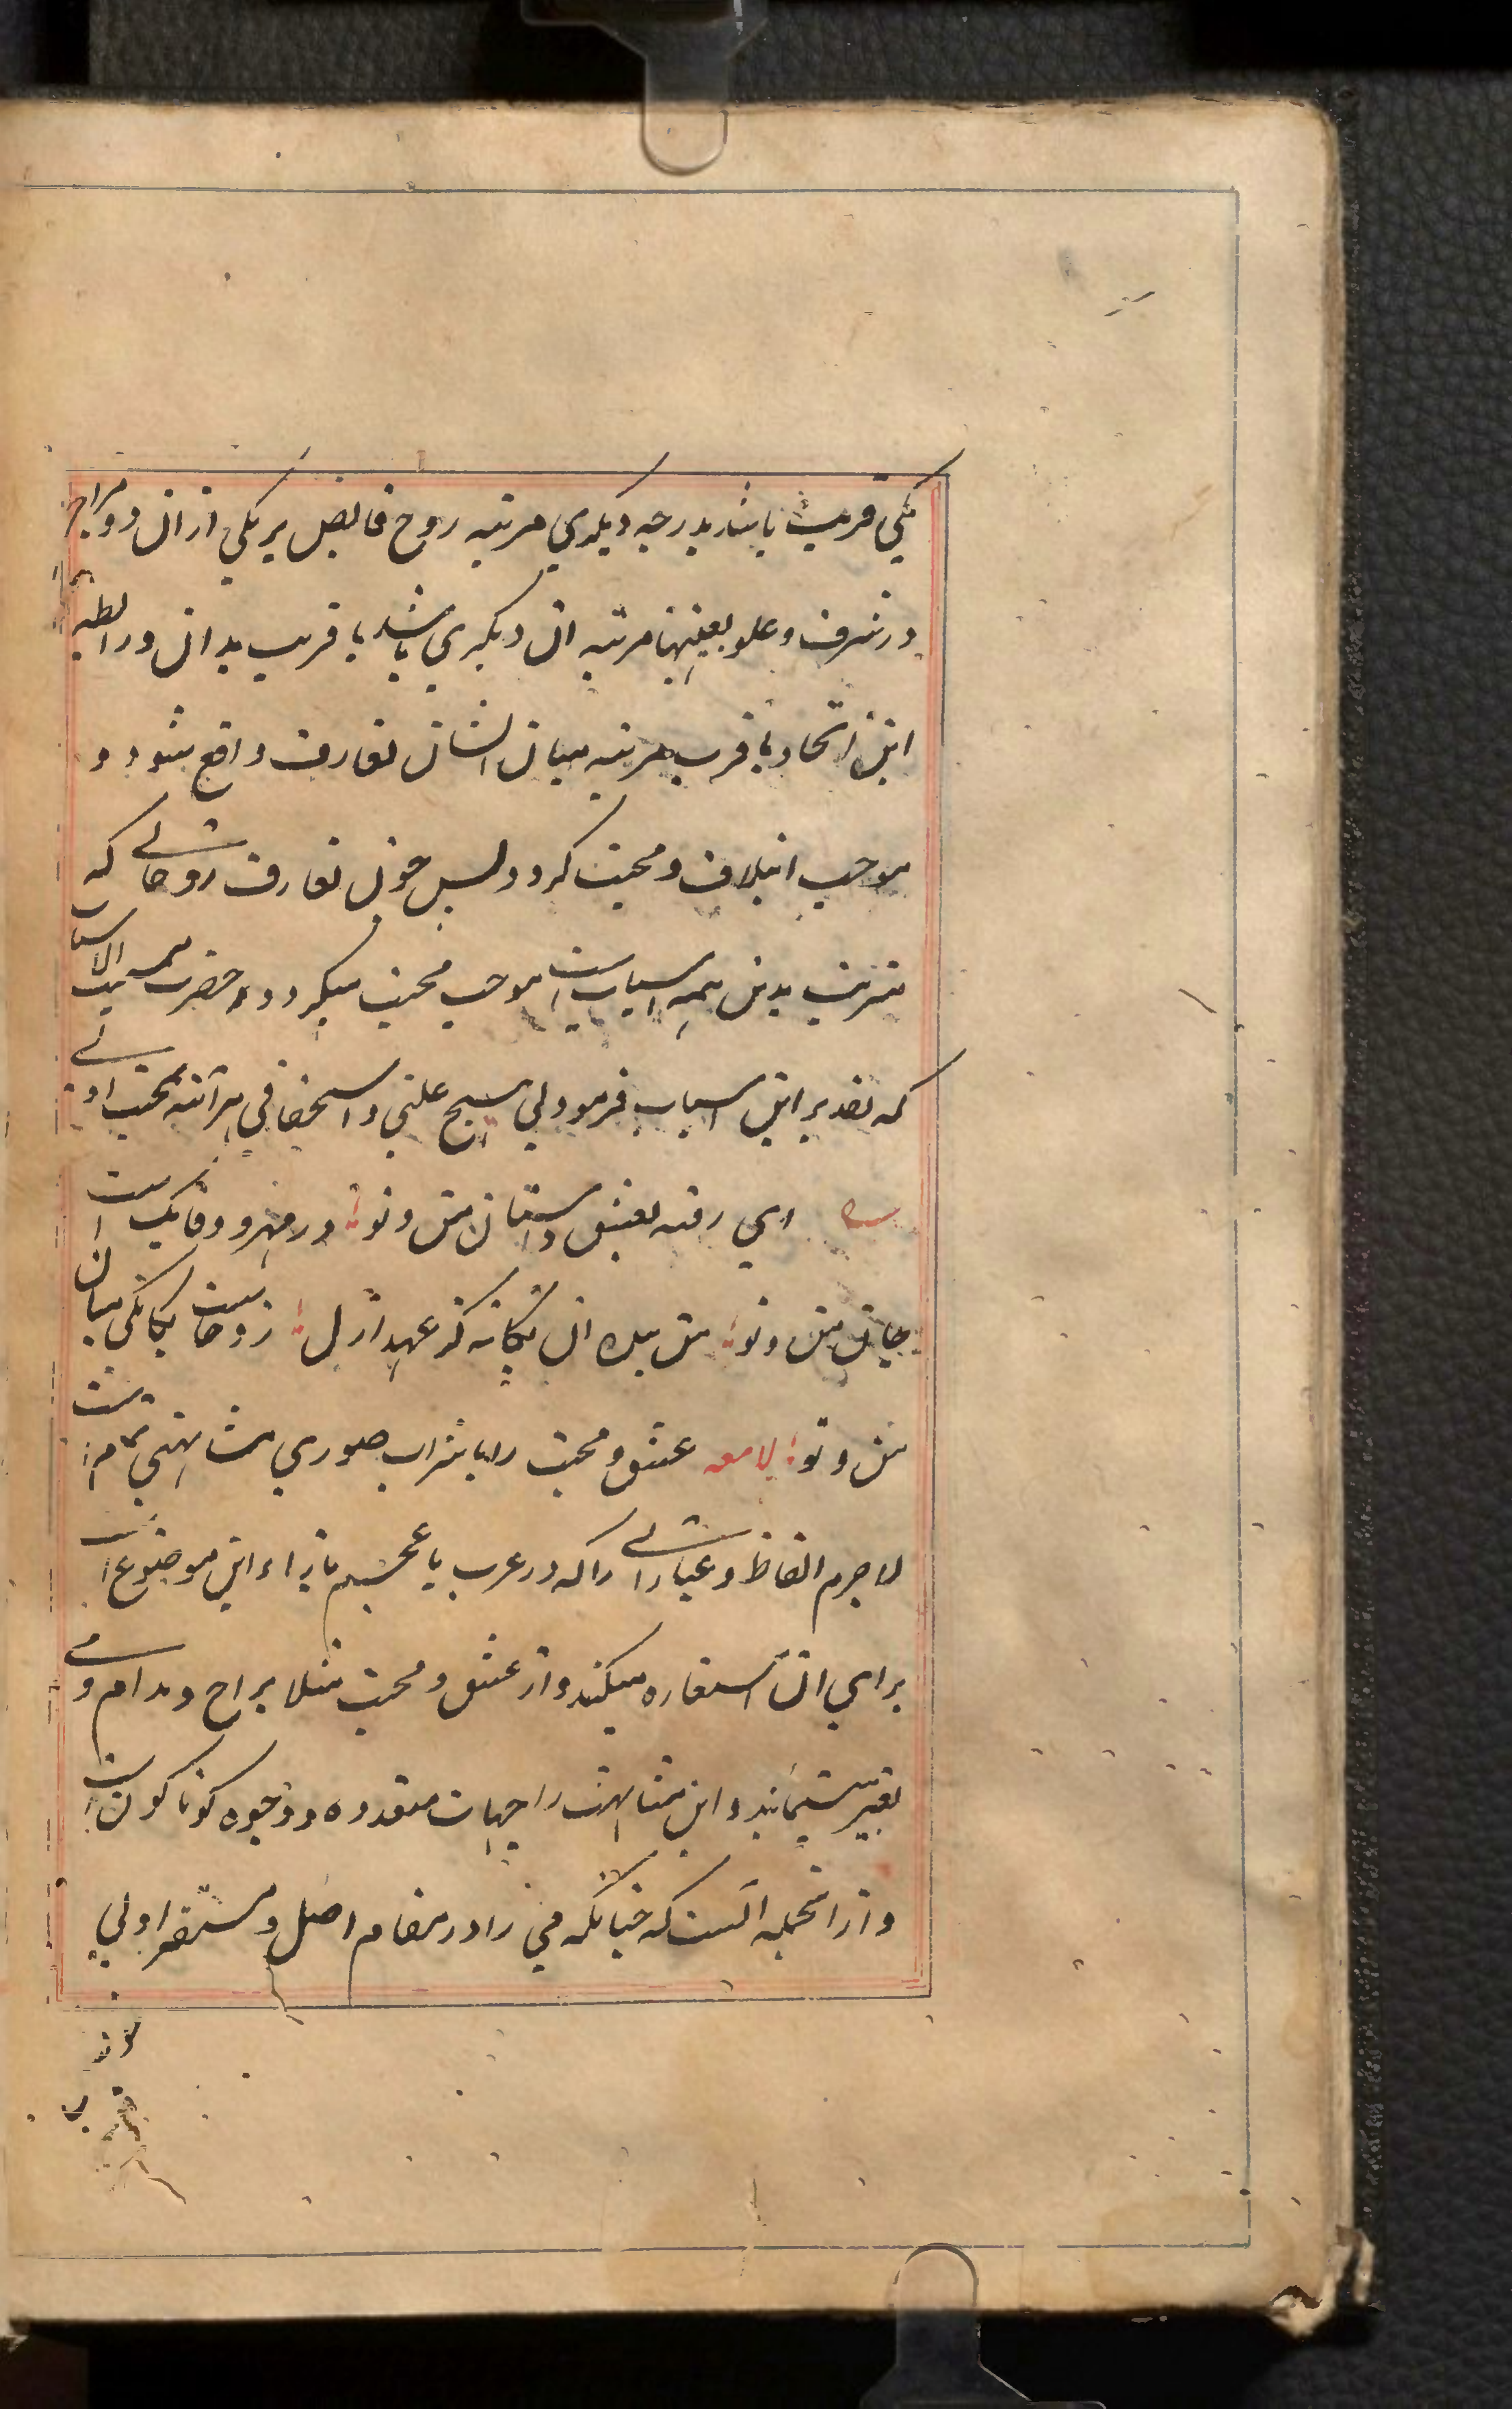 یکی قریب باشد بدرجه دیگری مرتبه روح فایض بر یکی ازان دو مزاج
در شرف و علو بعینها مرتبه ان دیگری باشد یا قریب بدان و رابطه
این اتحاد یا قرب مرتبه میان ایشان تعارف واقع شود و
موجب ایتلاف و محبت گردد پس چون تعارف روحانی که
مترتب بدین همه اسبابست موجب محبت میگردد حضرت مسبب الاسباب
که تقدیر این اسباب فرمود بی هیچ علتی و استحقاقی هرآئنه بمحبت اولی
ای رفته بعشق داستان من و تو در مهر و وفا یکیست
جان من و تو من بنده ان یگانه کز عهد ازل زو خاست یگانگی میان
من و تو لامعه عشق و محبت را با شراب صوری مشابهتی تمامست
لاجرم الفاظ و عباراتی را که در عرب یا عجم بازاء این موضوعست
برای ان استعاره میکنند و از عشق و محبت مثلا براح و مدام و می
تعبیر مینمایند و این مشابهت را جهات متعدده و وجوه گوناگونست
و از انجمله انست که چنانکه می را در مقام اصل و مستقر اولی